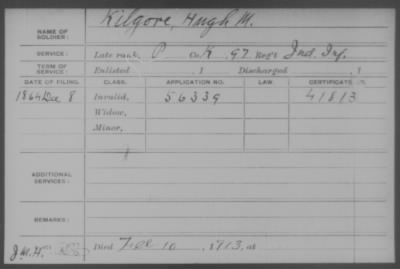 NAME OF SOLDIER: Kilgore, Hugh M.
SERVICE: Late rank, P Co. K, 97 Reg't Ind. Inf.
TERM OF SERVICE: Enlisted 1 Discharged , 1
DATE OF FILING. CLASS. APPLICATION NO. LAW. CERTIFICATE NO.
1864 Dec 8 Invalid, 56339 41813
Widow,
Minor,
ADDITIONAL SERVICES:
REMARKS:
J.M.H. Died Feb 10, 1913, at